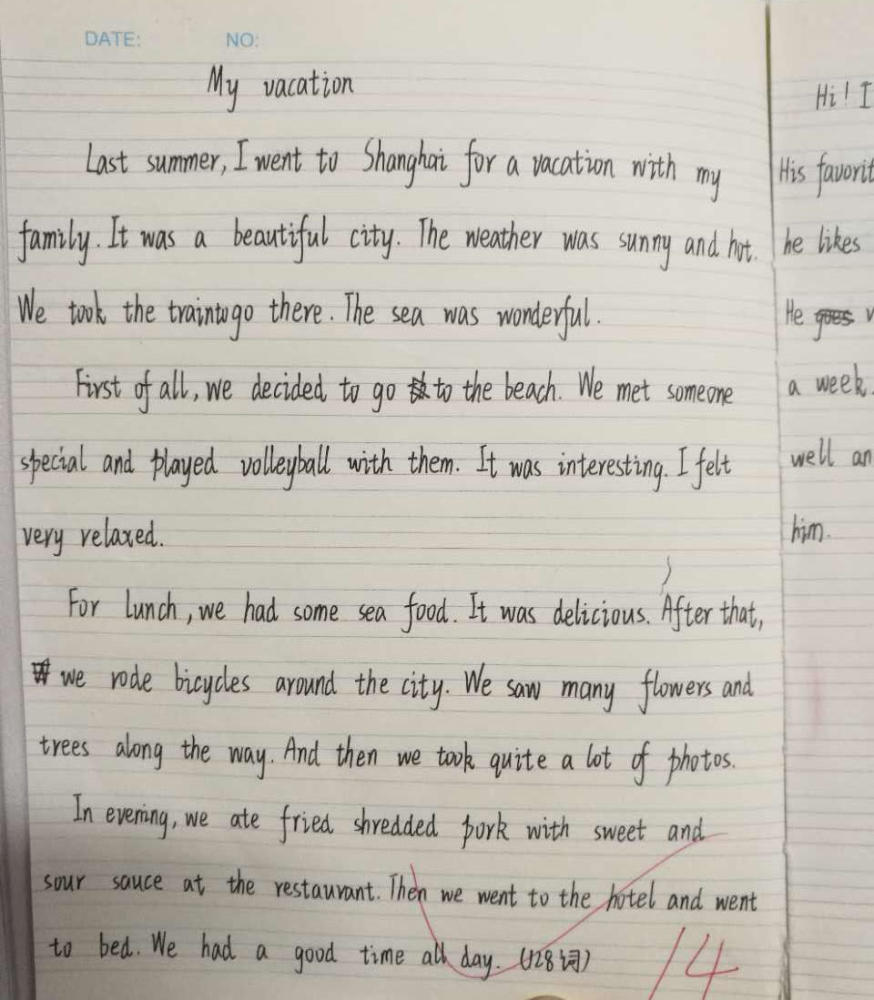 DATE: NO:
My vacation
Last summer, I went to Shanghai for a vacation with my
family. It was a beautiful city. The weather was sunny and hot.
We took the train to go there. The sea was wonderful.
First of all, we decided to go to the beach. We met someone
special and played volleyball with them. It was interesting. I felt
very relaxed.
For lunch, we had some sea food. It was delicious. After that,
we rode bicycles around the city. We saw many flowers and
trees along the way. And then we took quite a lot of photos.
In evening, we ate fried shredded pork with sweet and
sour sauce at the restaurant. Then we went to the hotel and went
to bed. We had a good time all day. (128词)
14
Hi! I
His favorit
he likes
He goes w
a week.
well an
him.